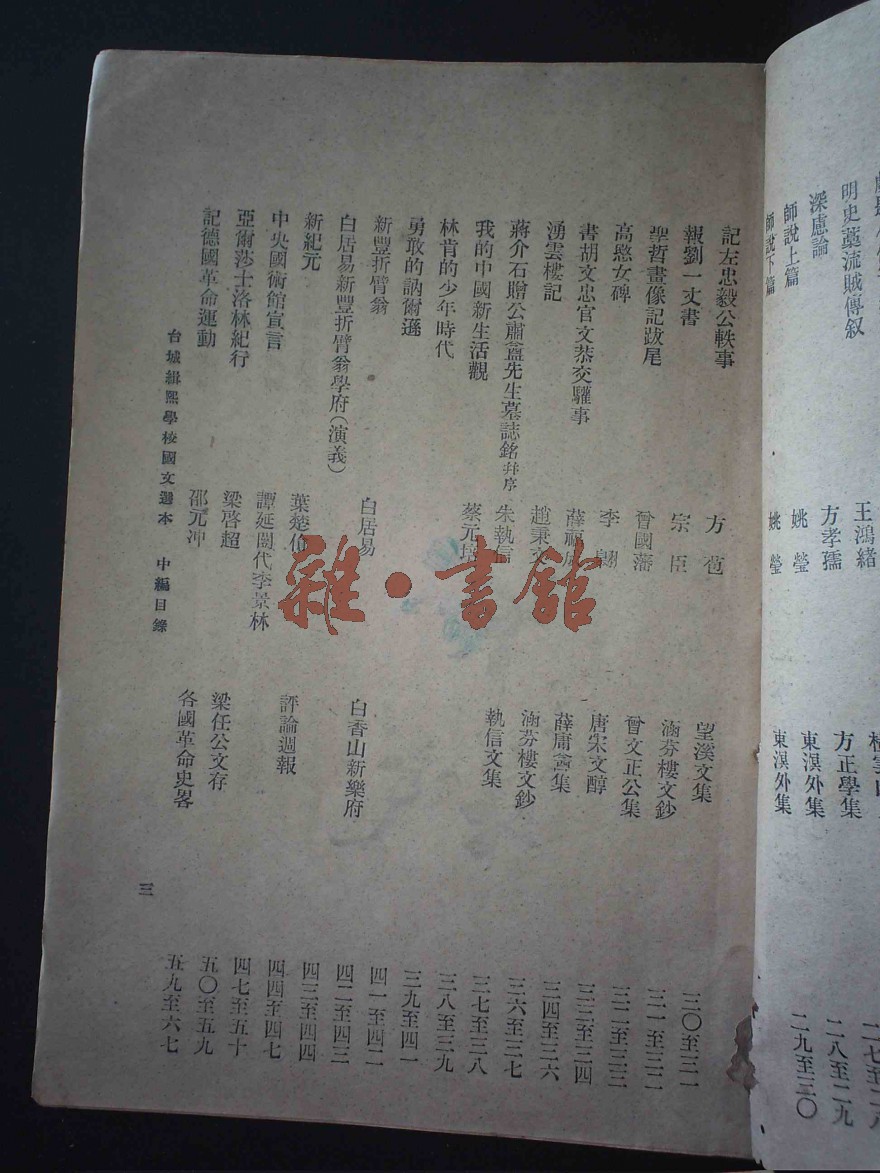 明史藁流賊傳叙 王鴻緒
深慮論 方孝孺 方正學集 二七至二八
師說上篇 姚瑩 東溟外集 二八至二九
師說下篇 姚瑩 東溟外集 二九至三〇
記左忠毅公軼事 方苞 望溪文集 三〇至三一
報劉一丈書 宗臣 涵芬樓文鈔 三一至三二
聖哲畫像記跋尾 曾國藩 曾文正公集 三二至三三
高愍女碑 李翺 唐宋文醇 三三至三四
書胡文忠官文恭交驩事 薛福成 薛庸盦集 三四至三六
湧雲樓記 趙秉文 涵芬樓文鈔 三六至三七
蔣介石贈公肅盦先生墓誌銘幷序 朱執信 執信文集 三七至三八
我的中國新生活觀 蔡元培 三八至三九
林肯的少年時代 三九至四一
勇敢的訥爾遜 四一至四二
新豐折臂翁 白居易 白香山新樂府 四二至四三
白居易新豐折臂翁學府(演義) 四三至四四
新紀元 葉楚傖 評論週報 四四至四七
中央國術館宣言 譚延闓代李景林 四七至五十
亞爾莎士洛林紀行 梁啓超 梁任公文存 五〇至五九
記德國革命運動 邵元冲 各國革命史畧 五九至六七
台城緝熙學校國文選本 中編目錄 三
雜·書館